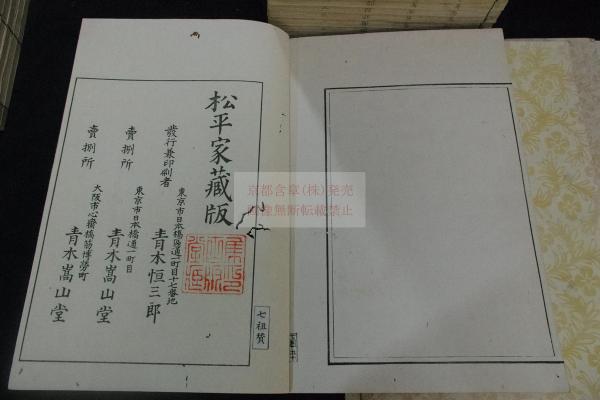 松平家藏版
發行兼印刷者
東京市日本橋區通一町目十七番地
青木恒三郎
賣捌所
東京市日本橋通一町目
青木嵩山堂
賣捌所
大阪市心齋橋筋博勞町
青木嵩山堂
七祖贊
京都含章(株)発売
画像無断転載禁止